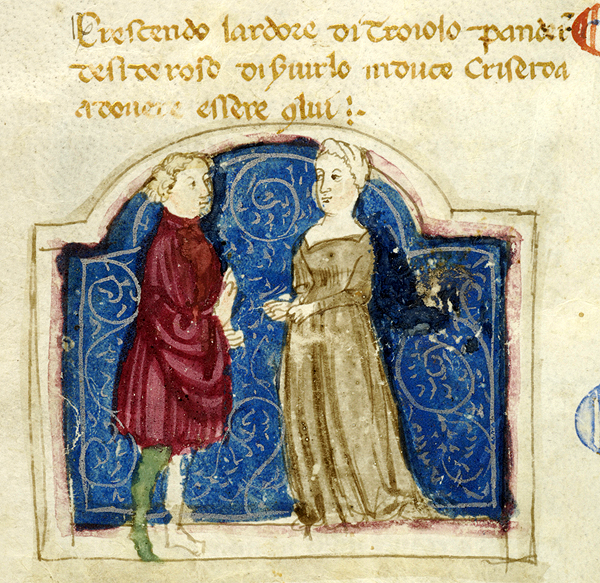 Crescendo lardore di Troiolo pandar
desideroso di seruirlo induce Criseida
a douere essere